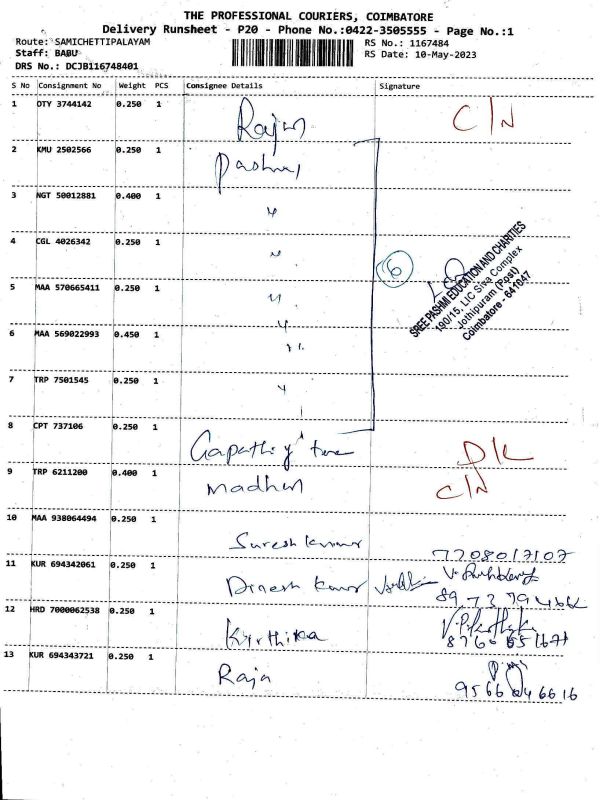 THE PROFESSIONAL COURIERS, COIMBATORE
Delivery Runsheet - P20 - Phone No.:0422-3505555 - Page No.:1
Route: SAMICHETTIPALAYAM
Staff: BABU
DRS No.: DCJB116748401
RS No.: 1167484
RS Date: 10-May-2023
S No Consignment No Weight PCS Consignee Details Signature
1 OTY 3744142 0.250 1 Rajan C/N
2 KMU 2502566 0.250 1
3 NGT 50012881 0.400 1 "
4 CGL 4026342 0.250 1 "
6
SREE PASHMI EDUCATION AND CHARITIES
190/15, LIC Siva Complex
Jothipuram (Post)
Coimbatore - 641047
5 MAA 570665411 0.250 1 "
6 MAA 569022993 0.450 1 "
7 TRP 7501545 0.250 1 "
8 CPT 737106 0.250 1 D/L
9 TRP 6211200 0.400 1 Madhan C/N
10 MAA 938064494 0.250 1 Suresh Kumar 7708017107
11 KUR 694342061 0.250 1 Dinesh Kumar
12 HRD 7000062538 0.250 1 Kirthika
13 KUR 694343721 0.250 1 Raja 9566046616